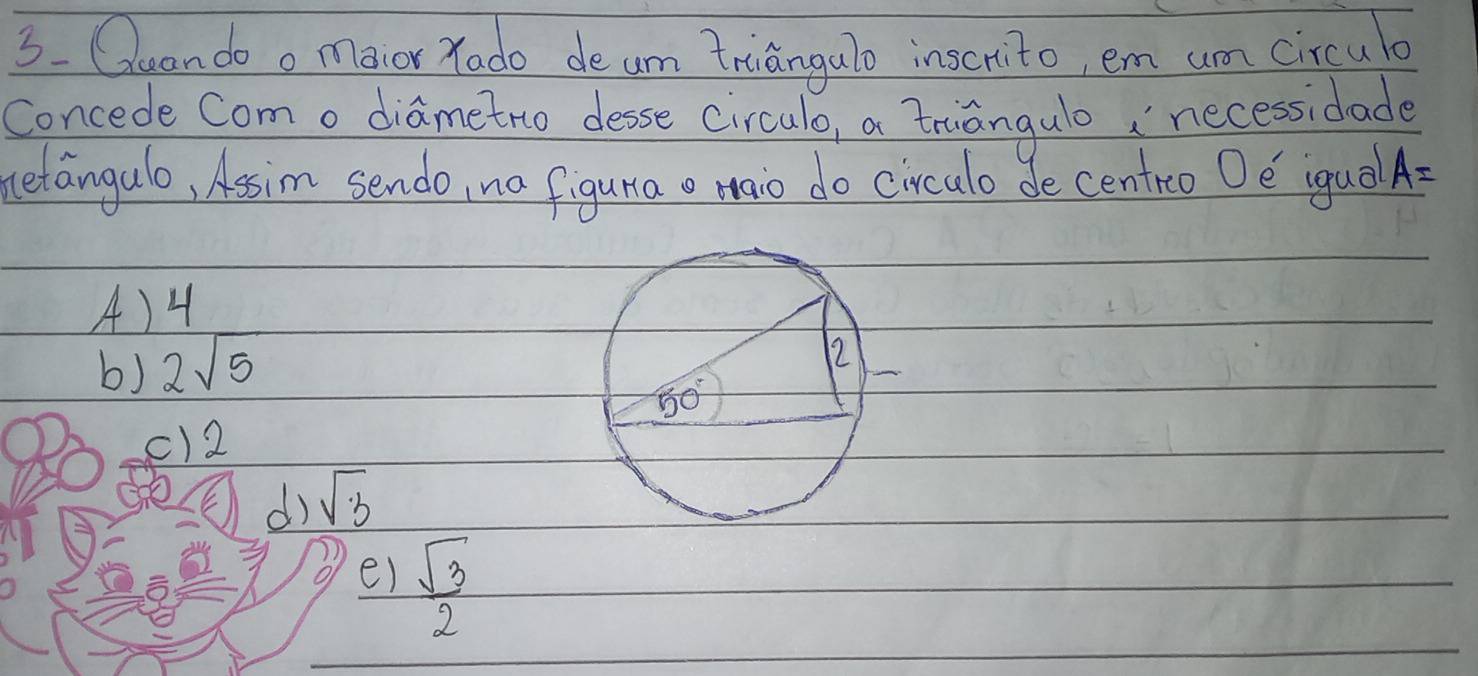 3- Quando o maior lado de um triângulo inscrito, em um circulo
Concede Com o diâmetro desse circulo, a triângulo é necessidade
retângulo, Assim sendo, na figura o raio do circulo de centro O é igual A=
A) 4
b) 2√5
c) 2
d) √3
e) √3
2
50°
2